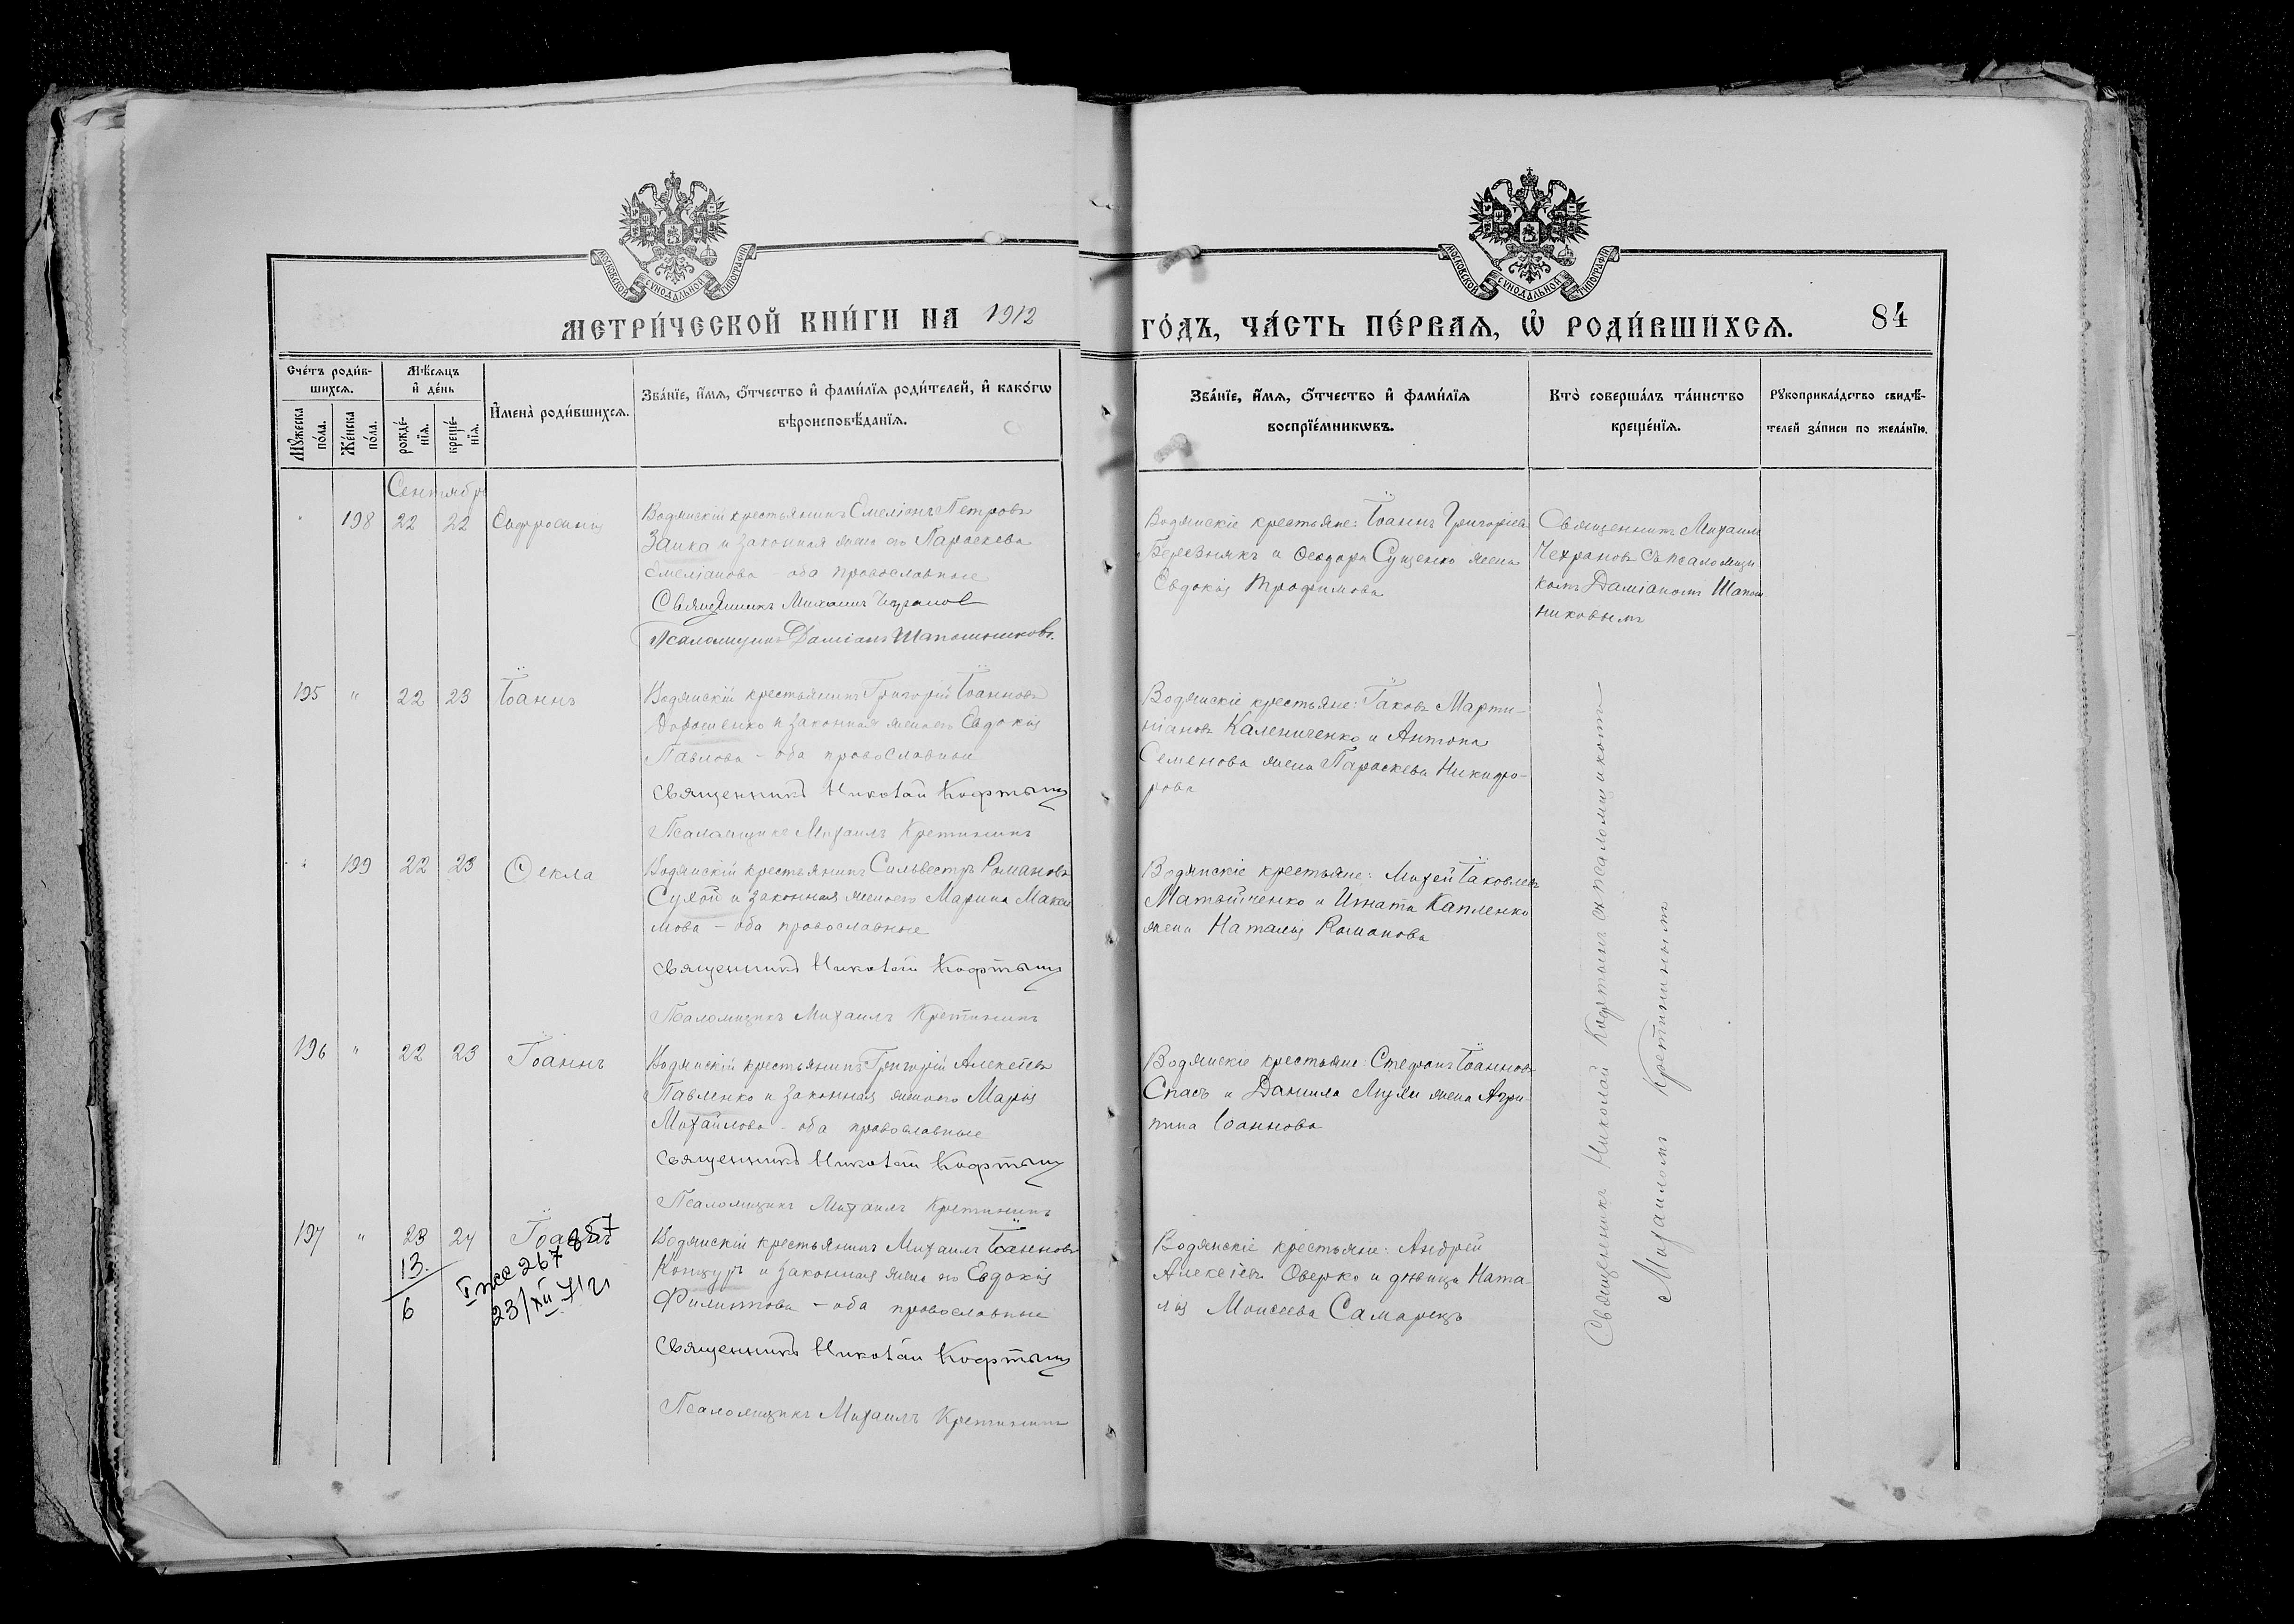 МОСКОВСКОЙ СѴНОДАЛЬНОЙ ТИПОГРАФІИ
МОСКОВСКОЙ СѴНОДАЛЬНОЙ ТИПОГРАФІИ
МЕТРИ́ЧЕСКОЙ КНИ́ГИ НА 1912 ГО́ДЪ, ЧА́СТЬ ПЕ́РВАѦ, Ѽ РОДИ́ВШИХСѦ. 84
Сче́тъ роди́в-
шихсѧ.
Мꙋ́жеска по́ла.
Же́нска по́ла.
Мѣ́сѧцъ
и҆ де́нь
рожде́-
нїѧ.
креще́-
нїѧ.
И҆мена̀ роди́вшихсѧ.
Зва́нїе, и҆́мѧ, ѻ҆́тчество и҆ фами́лїѧ роди́телей, и҆ како́гѡ
вѣроисповѣ́данїѧ.
Зва́нїе, и҆́мѧ, ѻ҆́тчество и҆ фами́лїѧ
воспрїе́мникѡвъ.
Кто̀ соверша́лъ та́инство
креще́нїѧ.
Рꙋкоприкла́дство свидѣ́-
телей за́писи по жела́нїю.
Сентябрь
198 22 22 Евфросинія
Водянскій крестьянинъ Емеліанъ Петровъ
Заика и законная жена его Параскева
Емеліанова - оба православные
Священникъ Михаилъ Чехранов
Псаломщикъ Даміанъ Шапошниковъ.
Водянскіе крестьяне: Іоаннъ Григоріевъ
Березнякъ и Ѳеодора Сущенко жена
Евдокія Трофимова
Священникъ Михаилъ
Чехрановъ съ псаломщи
комъ Даміаномъ Шапош
никовымъ
195 " 22 23 Іоаннъ
Водянскій крестьянинъ Григорій Іоанновъ
Дорошенко и законная жена его Евдокія
Павлова - оба православные
Священникъ Николай Кофтынъ
Псаломщикъ Михаилъ Кретининъ
Водянскіе крестьяне: Іаковъ Марти-
ніановъ Калениченко и Антона
Семенова жена Параскева Никифо-
рова
" 199 22 23 Ѳекла
Водянскій крестьянинъ Сильвестръ Романовъ
Сухой и законная жена его Марина Макси
мова - оба православные
Священникъ Николай Кофтынъ
Псаломщикъ Михаилъ Кретининъ
Водянскіе крестьяне: Михей Іаковлевъ
Матвійченко и Игната Капленко
жена Наталія Романова
196 " 22 23 Іоаннъ
Водянскій крестьянинъ Григорій Алексѣевъ
Павленко и законная жена его Марія
Михайлова - оба православные
Священникъ Николай Кофтынъ
Псаломщикъ Михаилъ Кретининъ
Водянскіе крестьяне: Стефанъ Іоанновъ
Спасъ и Данила жена Агри
пина Іоаннова
197 " 23 24 Іоаннъ
13.
6
267857
23/XII-71г
Водянскій крестьянинъ Михаилъ Іоанновъ
Концуръ и законная жена его Евдокія
Филиппова - оба православные
Священникъ Николай Кофтынъ
Псаломщикъ Михаилъ Кретининъ
Водянскіе крестьяне: Андрей
Алексѣевъ Оверко и дѣвица Ната-
лія Моисеева Самарецъ
Священникъ Николай Кофтынъ съ псаломщикомъ
Михаиломъ Кретининымъ